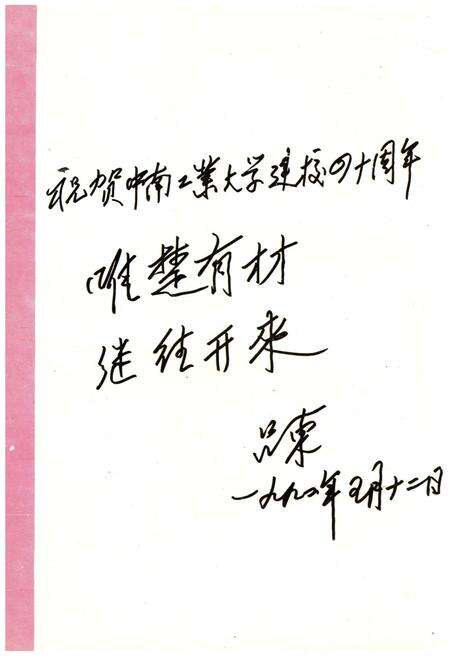 祝贺中南工業大学建校四十周年
唯楚有材
继往开來
吕東
一九九二年五月十二日